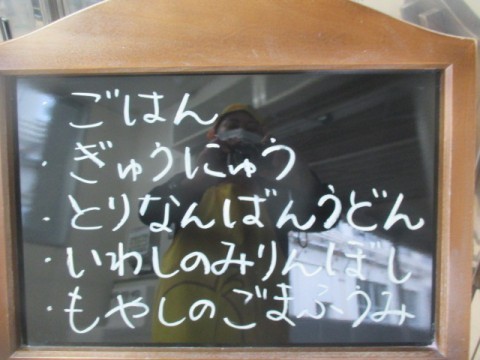 ごはん
・ぎゅうにゅう
・とりなんばんうどん
・いわしのみりんぼし
・もやしのごまふうみ